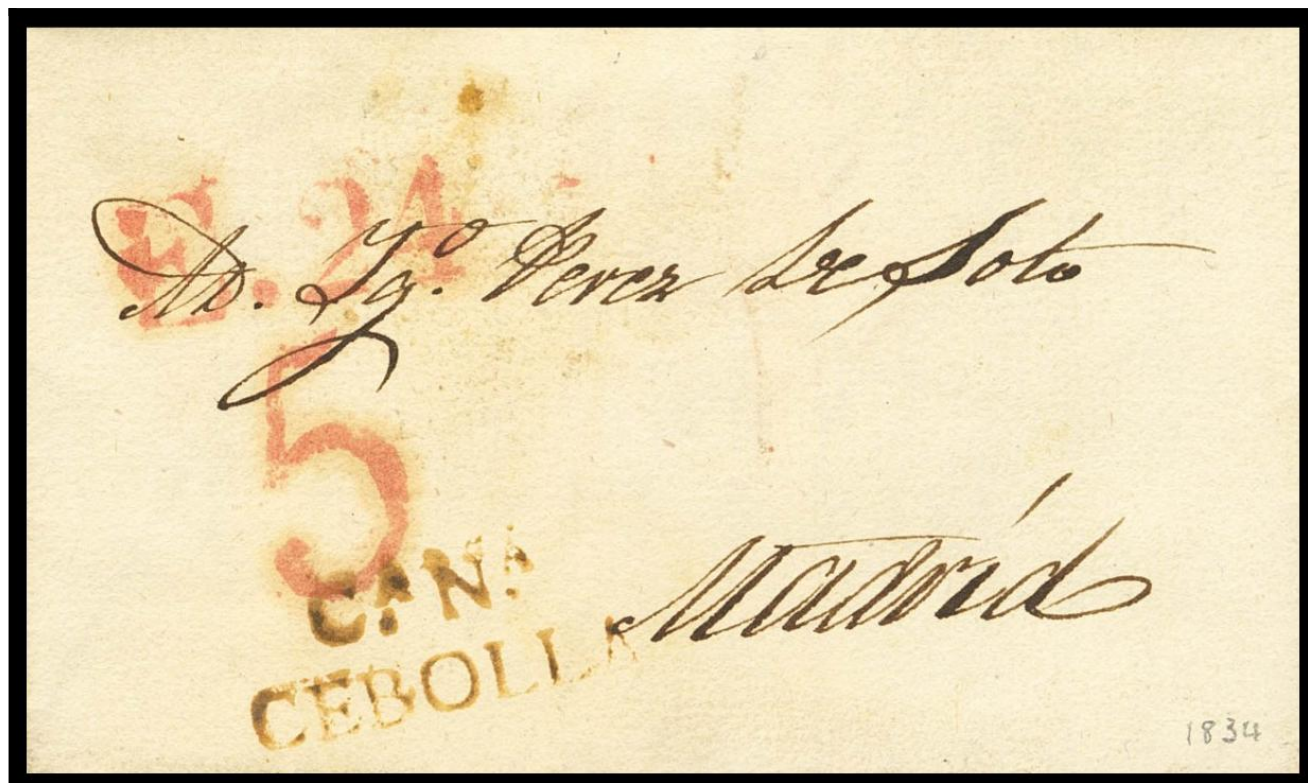 E. 24
D. Ygº. Perez de Soto
5
Cª. Nª.
CEBOLLA
Madrid
1834